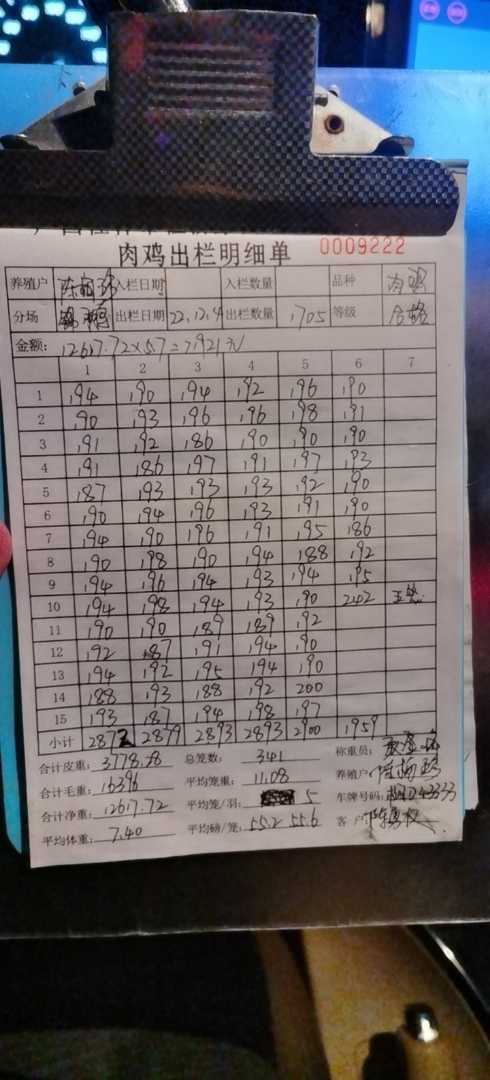 肉鸡出栏明细单 0009222
养殖户 入栏日期 入栏数量 品种 肉鸡
分场 出栏日期 22,12,4 出栏数量 1705 等级 合格
金额: 12617.72×5.7=71921元
1 2 3 4 5 6 7
1 194 190 194 192 196 190
2 190 193 196 196 198 191
3 191 192 186 190 190 190
4 191 186 197 191 197 193
5 187 193 193 193 192 190
6 190 194 196 193 191 190
7 194 190 196 191 195 186
8 190 198 190 194 188 192
9 194 196 194 193 194 195
10 194 198 194 193 190 242 五笼
11 190 190 189 189 192
12 192 187 191 194 190
13 194 192 195 194 190
14 188 193 188 192 200
15 193 187 194 198 197
小计 2872 2879 2893 2893 2900 1959
合计皮重: 3778.28 总笼数: 341 称重员:
合计毛重: 16396 平均笼重: 11.08 养殖户
合计净重: 12617.72 平均笼/羽: 5 车牌号码:
平均体重: 7.40 平均磅/笼: 55.2 55.6 客户